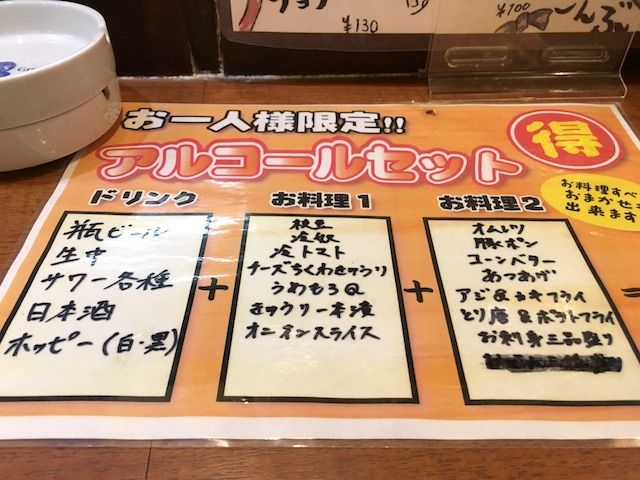 ¥130
130
¥100
こんぶ
お一人様限定!!
アルコールセット
得
お料理すべ
おまかせも
出来ます
ドリンク
瓶ビール
生中
サワー各種
日本酒
ホッピー(白・黒)
+
お料理1
枝豆
冷奴
冷トマト
チーズちくわきゅうり
うめもろQ
きゅうり一本漬
オニオンスライス
+
お料理2
オムレツ
豚ポン
コーンバター
あつあげ
アジ&カキフライ
とり唐&ポテトフライ
お刺身三品盛り
=